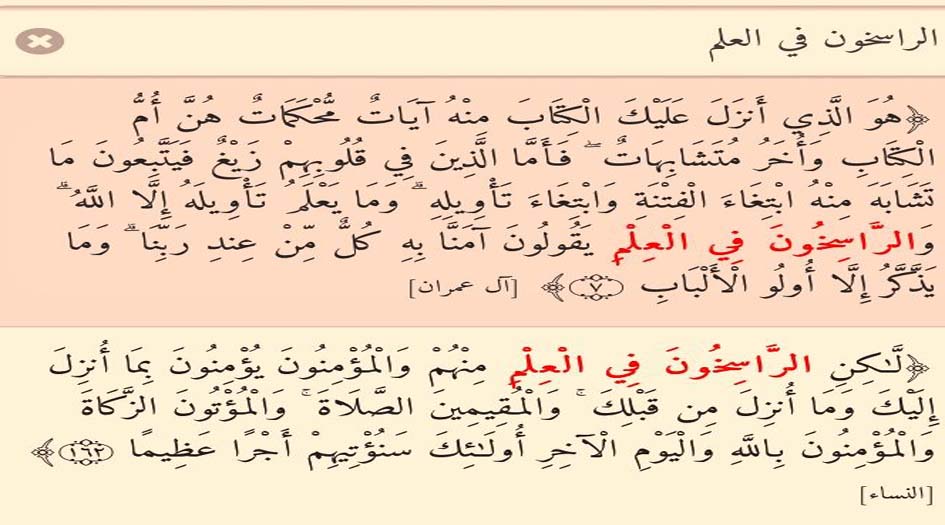 الراسخون في العلم
﴿هُوَ الَّذِي أَنزَلَ عَلَيْكَ الْكِتَابَ مِنْهُ آيَاتٌ مُّحْكَمَاتٌ هُنَّ أُمُّ
الْكِتَابِ وَأُخَرُ مُتَشَابِهَاتٌ ۖ فَأَمَّا الَّذِينَ فِي قُلُوبِهِمْ زَيْغٌ فَيَتَّبِعُونَ مَا
تَشَابَهَ مِنْهُ ابْتِغَاءَ الْفِتْنَةِ وَابْتِغَاءَ تَأْوِيلِهِ ۗ وَمَا يَعْلَمُ تَأْوِيلَهُ إِلَّا اللَّهُ ۗ
وَالرَّاسِخُونَ فِي الْعِلْمِ يَقُولُونَ آمَنَّا بِهِ كُلٌّ مِّنْ عِندِ رَبِّنَا ۗ وَمَا
يَذَّكَّرُ إِلَّا أُولُو الْأَلْبَابِ ﴿٧﴾ [آل عمران]
﴿لَّٰكِنِ الرَّاسِخُونَ فِي الْعِلْمِ مِنْهُمْ وَالْمُؤْمِنُونَ يُؤْمِنُونَ بِمَا أُنزِلَ
إِلَيْكَ وَمَا أُنزِلَ مِن قَبْلِكَ ۚ وَالْمُقِيمِينَ الصَّلَاةَ ۚ وَالْمُؤْتُونَ الزَّكَاةَ
وَالْمُؤْمِنُونَ بِاللَّهِ وَالْيَوْمِ الْآخِرِ أُولَٰئِكَ سَنُؤْتِيهِمْ أَجْرًا عَظِيمًا ﴿١٦٢﴾
[النساء]